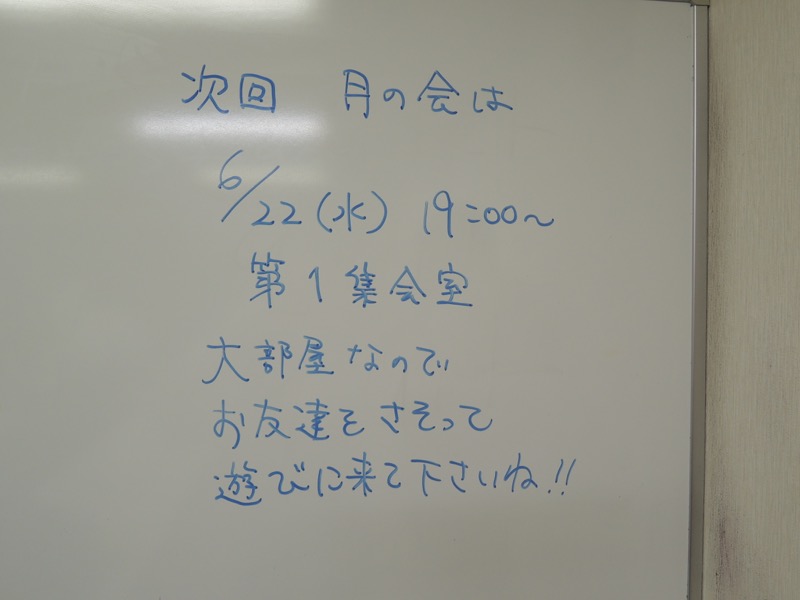 次回 月の会は
6/22(水) 19:00~
第1集会室
大部屋なので
お友達をさそって
遊びに来て下さいね!!